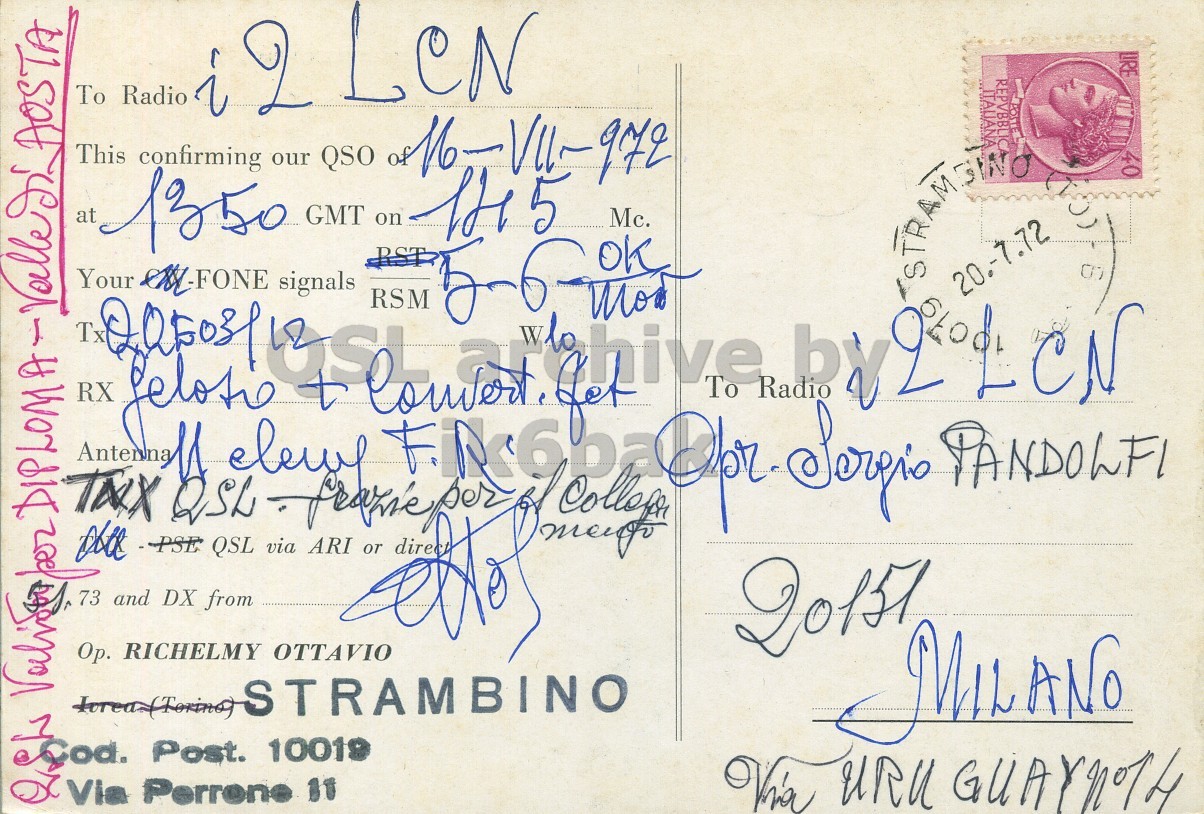 QSL Valida per DIPLOMA - Valle di AOSTA
To Radio i2LCN
This confirming our QSO of 16-VII-972
at 1350 GMT on 145 Mc.
Your CW-FONE signals RST RSM 5-6- OK
Tx QQE03/12 W 10
RX Geloso + Convert. Fet
Antenna 11 elem F.R.
TNX QSL - Grazie per il collegamento
TNX - PSE QSL via ARI or direct
51. 73 and DX from
Op. RICHELMY OTTAVIO
Ivrea (Torino) STRAMBINO
Cod. Post. 10019
Via Perrone 11
LIRE 40
POSTE
REPVBBLICA
ITALIANA
10019 STRAMBINO (TO)
20.-7.72
To Radio i2LCN
Opr. Sergio PANDOLFI
20151
MILANO
Via URUGUAY n° 14
QSL archive by
ik6bak